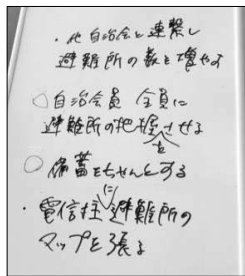 ・他自治会と連繋し
避難所の数を増やす
○自治会員 全員に
避難所の把握をさせる
○備蓄をちゃんとする
・電信柱に避難所の
マップを張る